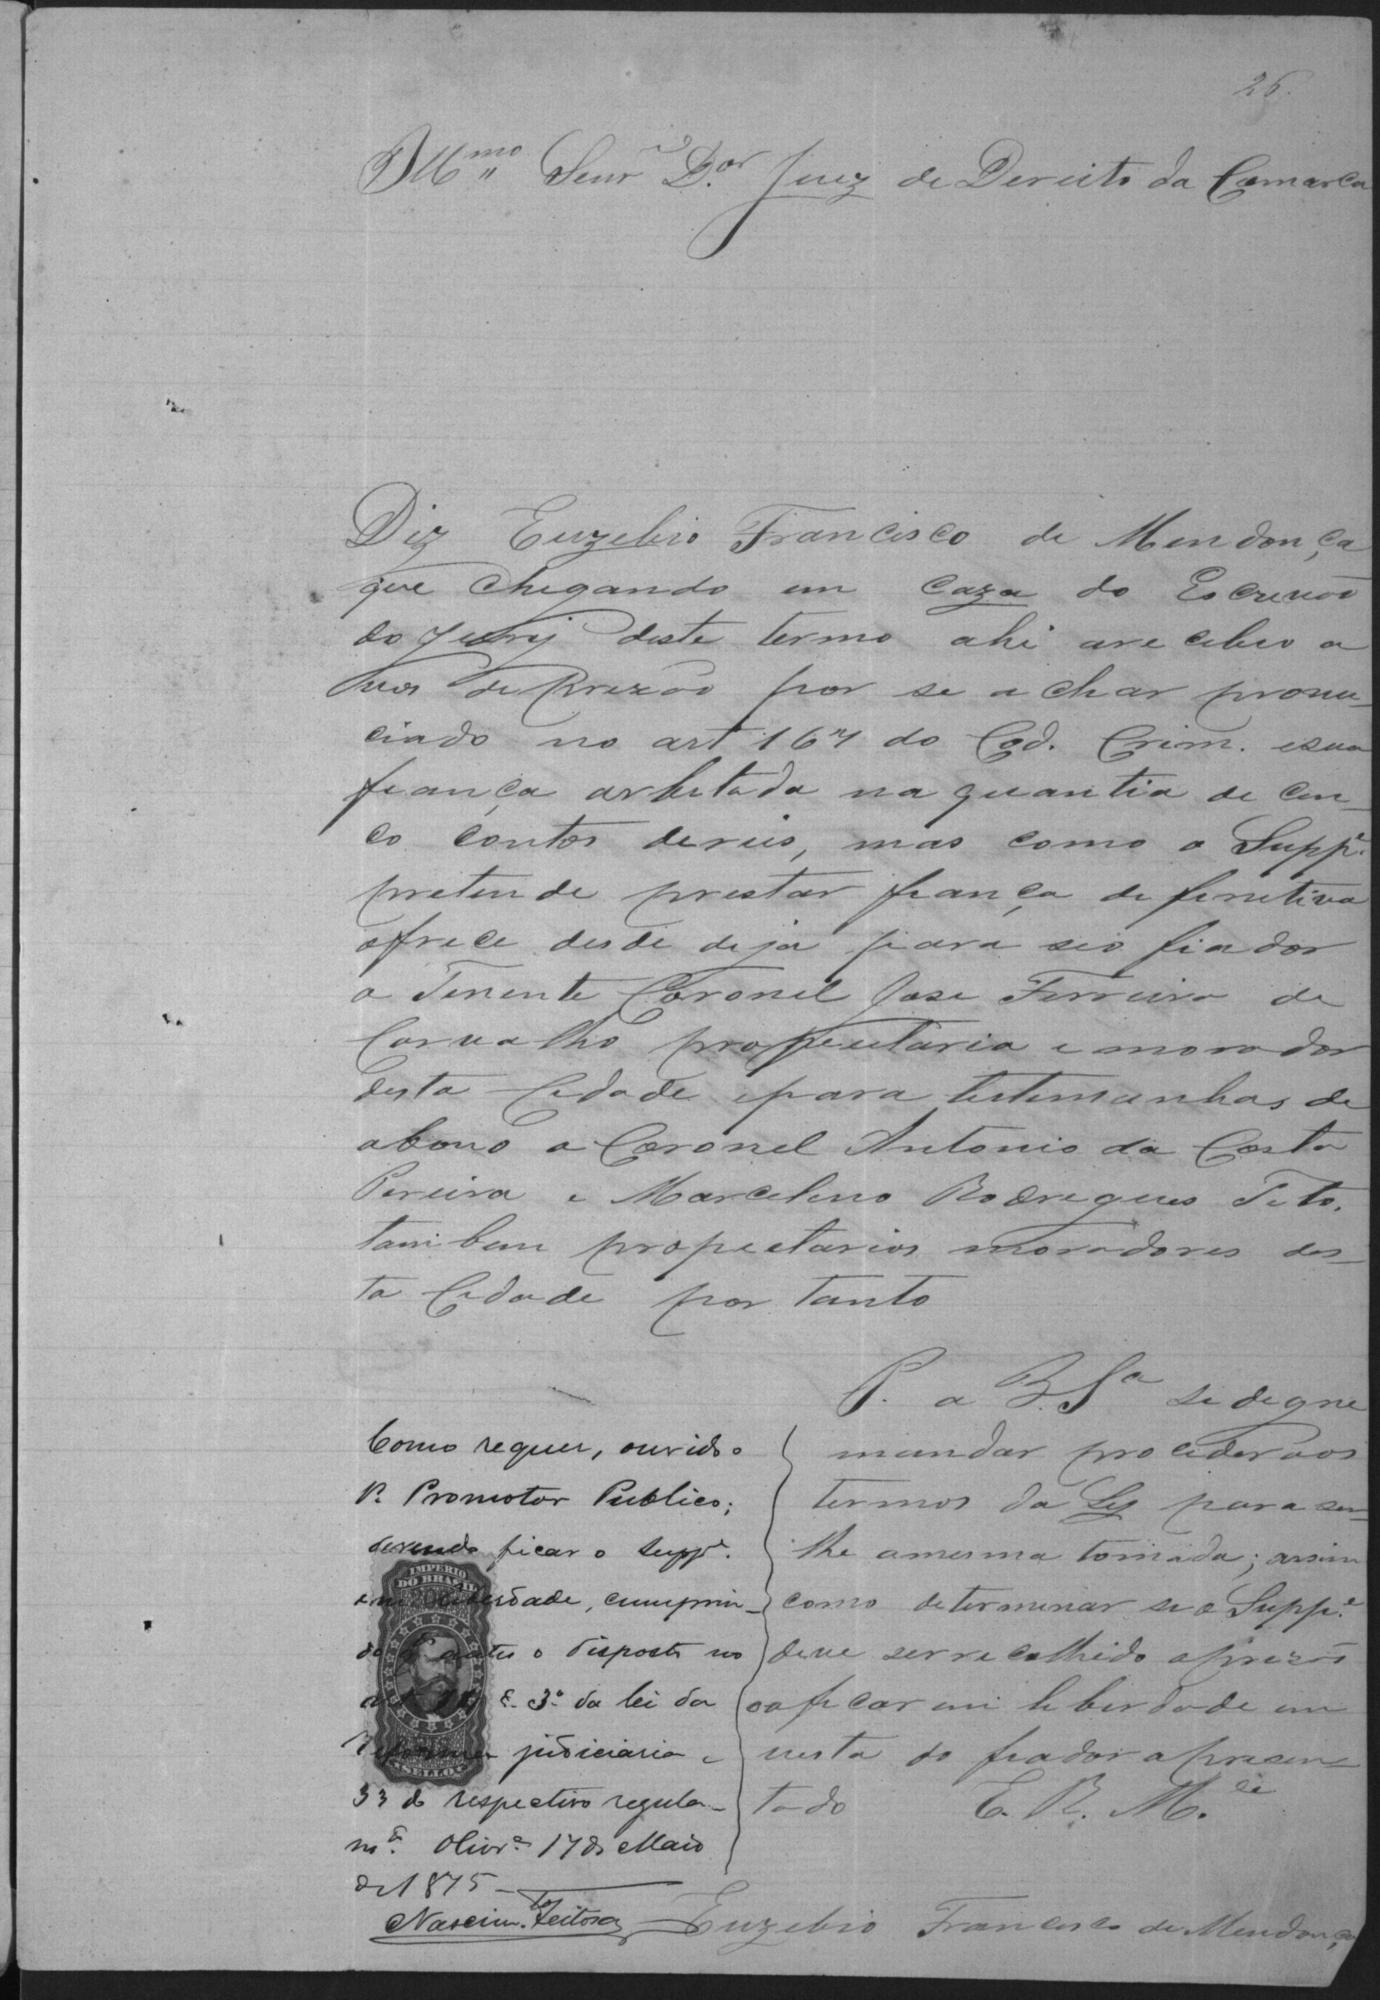 26.
Illmo Senr Dor Juiz de Dereito da Comarca
Diz Euzebio Francisco de Mendonça
que chegando em caza do Escrivão
do Jury deste termo ahi arecebeo a
vos de Prezão por se achar pronu-
ciado no art 167 do Cod. Crim. esua
fiança arbitada na quantia de cin-
co contos dereis, mas como o Suppe.
pretende prestar fiança definetiva
ofrece desde deja para seo fiador
o Tenente Coronel Jose Ferreira de
Carvalho propietario e morador
desta Cidade epara testemunhas de
abono o Coronel Antonio da Costa
Pereira e Marcelino Rodrigues Teto,
tambem propietarios moradores des-
ta Cidade por tanto
P. a V. Sa se digne
mandar proceder aos
termos da Ley para ser
lhe amesma tomada; assim
como determinar se o Suppe.
deve serrecolhido aprezão
oaficar em leberdade em
vista do fiador apresen-
tado E. R. Mce
Euzebio Francisco de Mendonça
Como requer, ouvido o
Dr. Promotor Publico;
devendo ficar o Suppe.
em liberdade, cumprin-
do antes o disposto no
art § 3º da lei da
Reforma judiciaria e
33 do respectivo regula-
mto. Olivra 17 de Maio
de 1875
Nascimto Feitosa
IMPERIO
DO BRASIL
SELLO